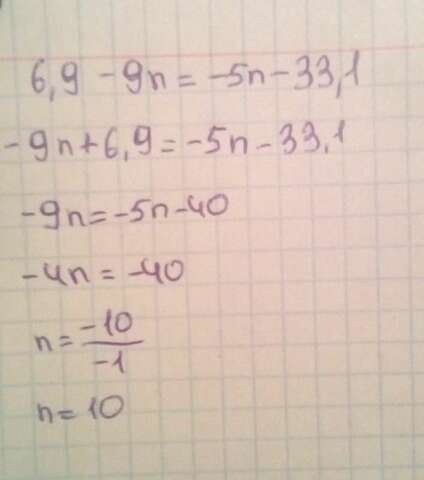 6,9 - 9n = -5n - 33,1
-9n + 6,9 = -5n - 33,1
-9n = -5n - 40
-4n = -40
n = -10/-1
n = 10